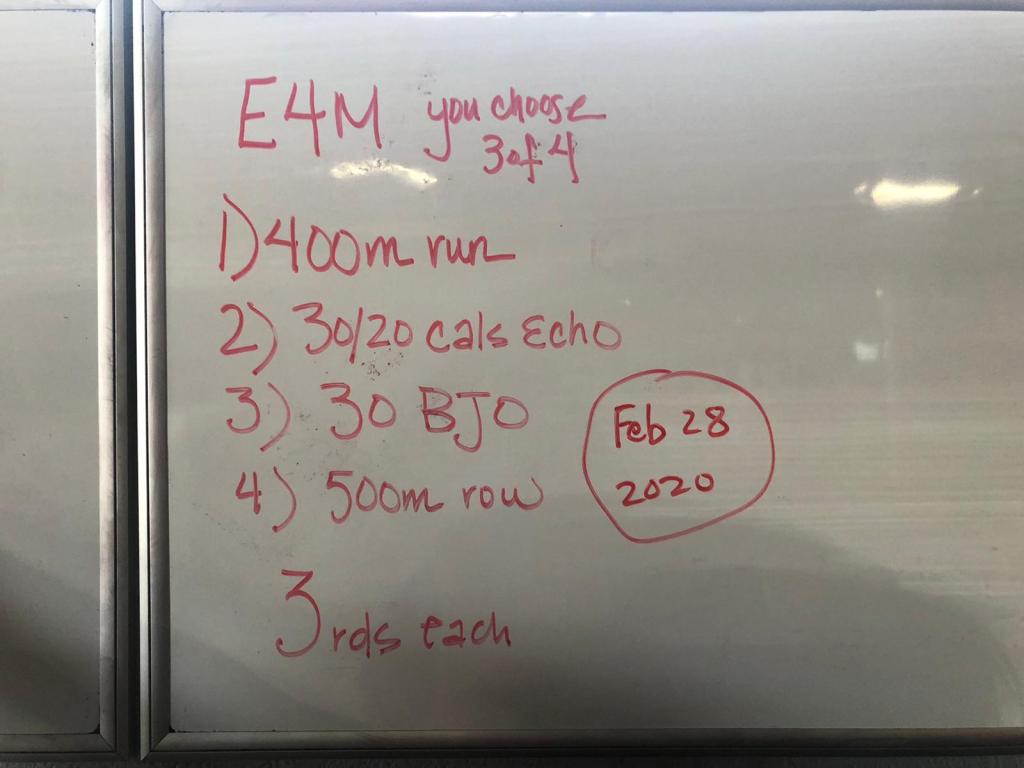 E4M you choose
3 of 4
1) 400m run
2) 30/20 cals Echo
3) 30 BJO
4) 500m row
Feb 28
2020
3 rds each